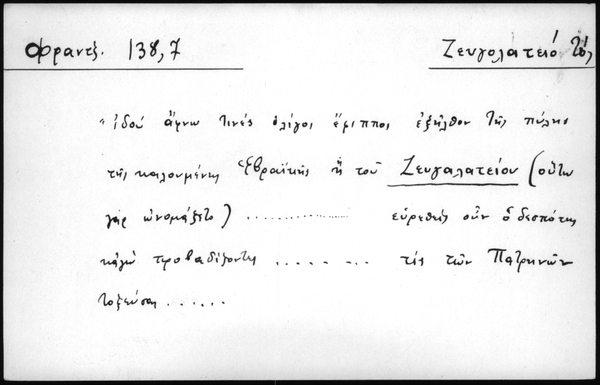 Φραντζ. 138,7
Ζευγολατειό Τό,
"ἰδού ἄφνω τινές ὀλίγοι ἔφιπποι ἐξῆλθον τῆς πύλης
τῆς καλουμένης Ἑβραϊκῆς ἤ τοῦ Ζευγαλατείου (οὕτω
γάρ ὠνομάζετο) .................. εὑρεθείς οὖν ὁ δεσπότης
κἀγώ προβαδίζοντες ....... τίς τῶν Πατρηνῶν
τοξεύσας ......